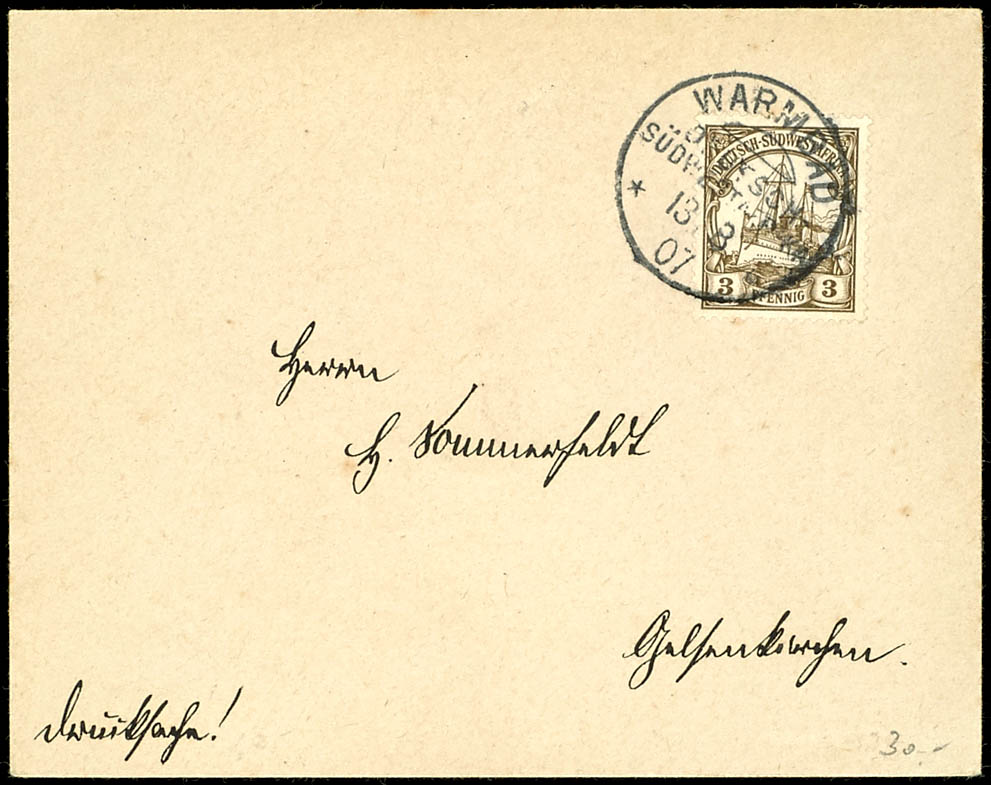 WARMBAD
DEUTSCH-
SÜDWESTAFRIKA
* 13 3 07 *
DEUTSCH-SÜDWESTAFRIKA
3 PFENNIG 3
Herrn
H. Sommerfeldt
Gelsenkirchen.
Drucksache!
30.-